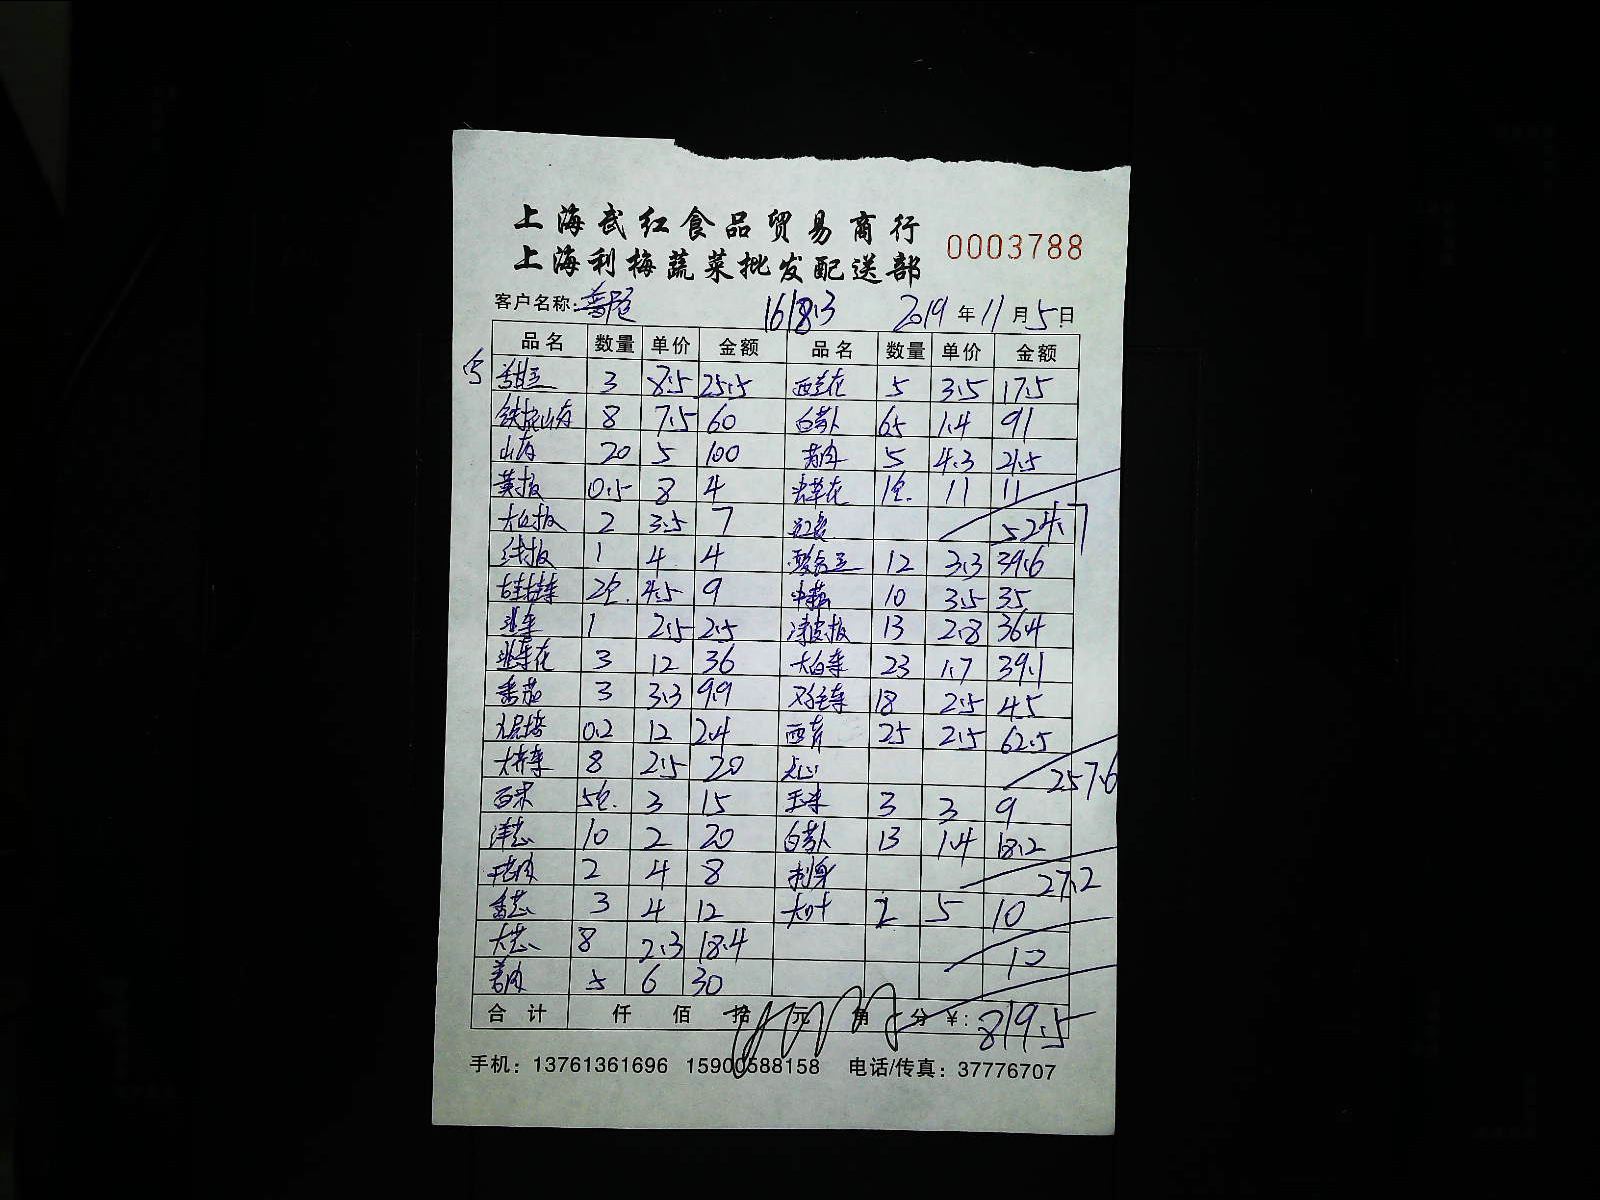 上海武红食品贸易商行
上海利梅蔬菜批发配送部
0003788
客户名称: 1618.3 2019年11月5日
品名 数量 单价 金额 品名 数量 单价 金额
甜豆 3 8.5 25.5 西兰花 5 3.5 17.5
铁棍山药 8 7.5 60 白萝卜 65 1.4 91
山药 20 5 100 5 4.3 21.5
黄椒 0.5 8 4 虫草花 1包. 11 11
大红椒 2 3.5 7 524.7
线椒 1 4 4 12 3.3 39.6
2包. 4.5 9 10 3.5 35
韭菜 1 2.5 2.5 青皮椒 13 2.8 36.4
韭菜花 3 12 36 大白菜 23 1.7 39.1
番茄 3 3.3 9.9 18 2.5 45
0.2 12 2.4 西芹 25 2.5 62.5
大芹菜 8 2.5 20 点心 257.6
西米 5包. 3 15 玉米 3 3 9
洋葱 10 2 20 白萝卜 13 1.4 18.2
2 4 8 刺身 27.2
香葱 3 4 12 大叶 2 5 10
大葱 8 2.3 18.4 10
姜肉 5 6 30
合计 仟 佰 拾 元 角 分 ¥: 819.5
手机: 13761361696 15900588158 电话/传真: 37776707